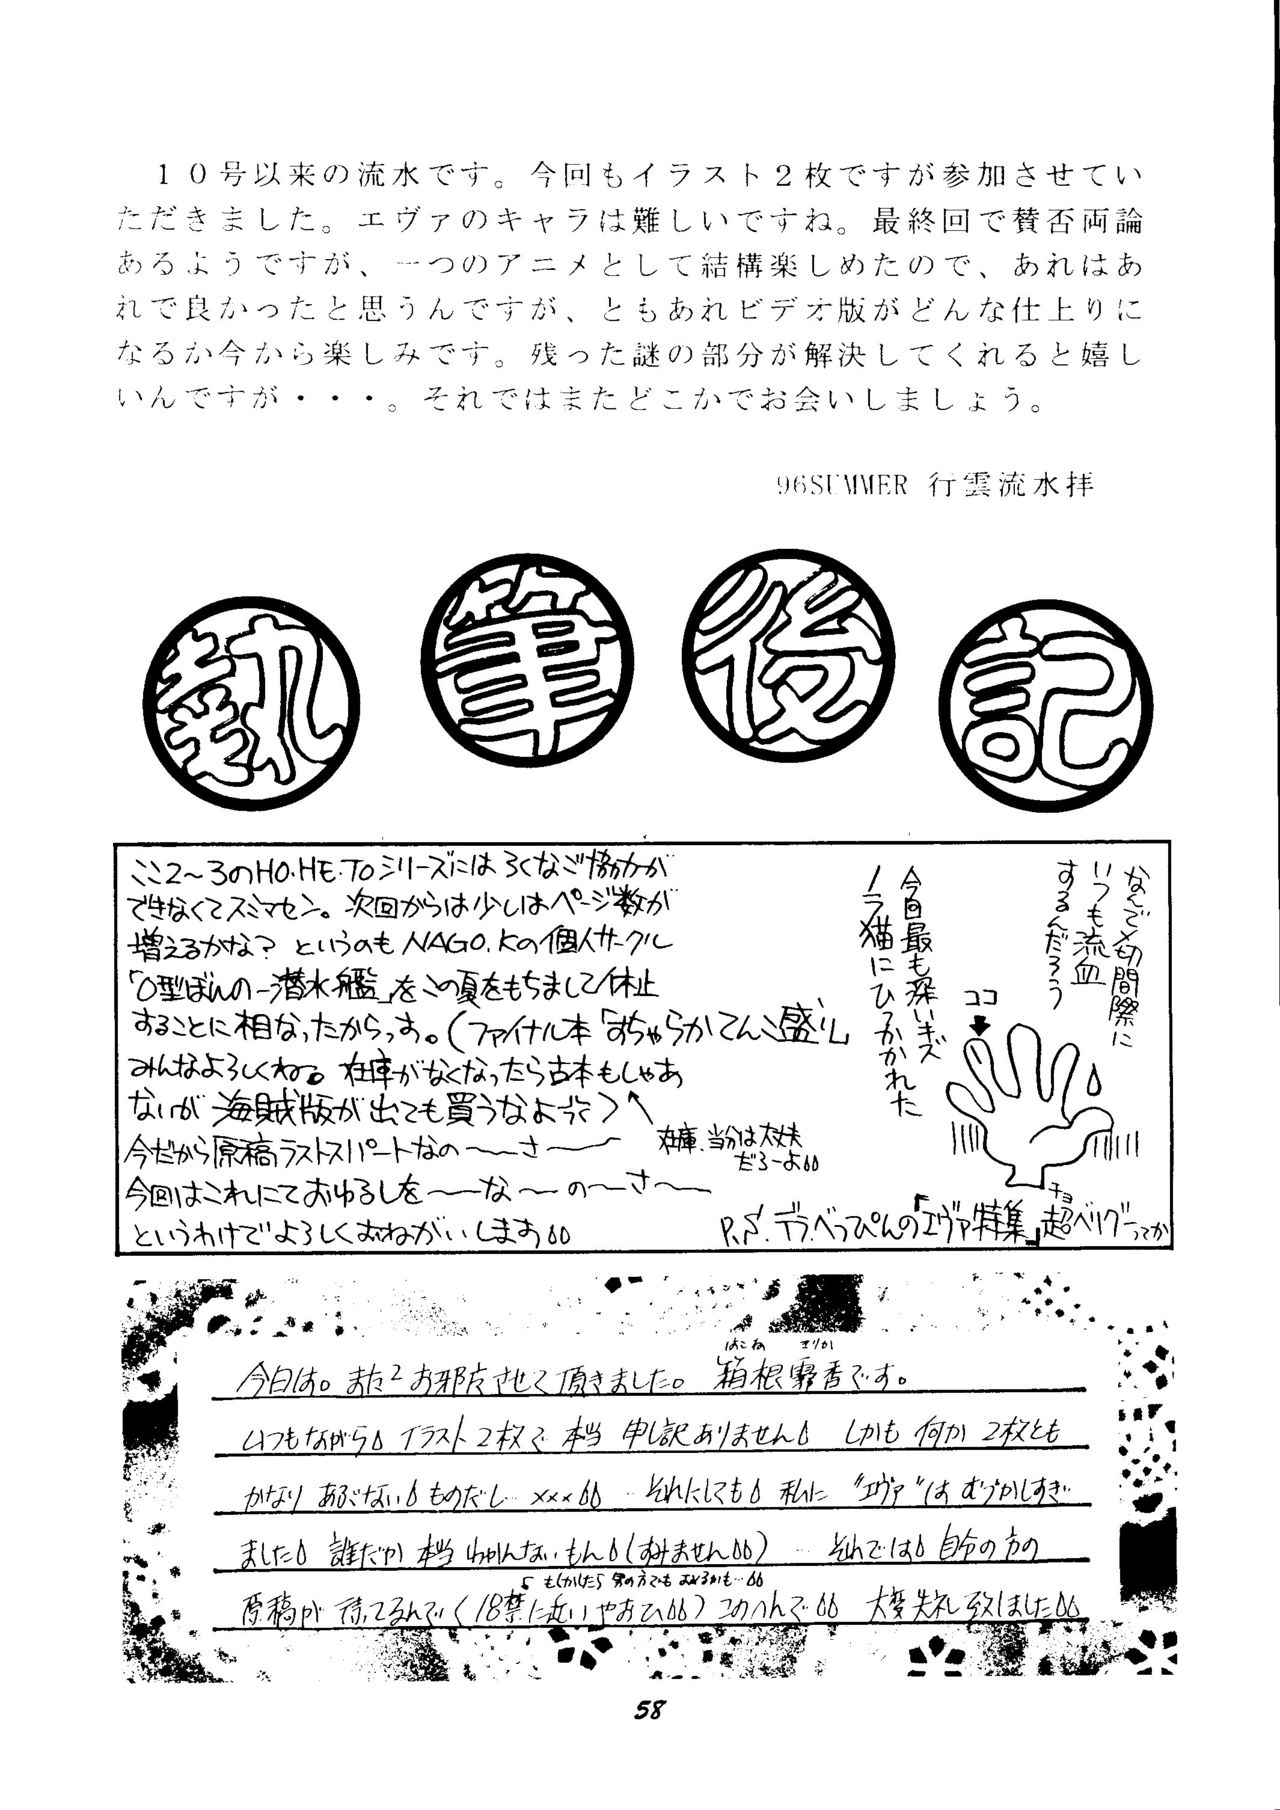 10号以来の流水です。今回もイラスト2枚ですが参加させてい
ただきました。エヴァのキャラは難しいですね。最終回で賛否両論
あるようですが、一つのアニメとして結構楽しめたので、あれはあ
れで良かったと思うんですが、ともあれビデオ版がどんな仕上りに
なるか今から楽しみです。残った謎の部分が解決してくれると嬉し
いんですが・・・。それではまたどこかでお会いしましょう。
96SUMMER 行雲流水拝
執筆後記
ここ2〜3のHO・HE・TOシリーズにはろくなご協力が
できなくてスミマセン。次回からは少しはページ数が
増えるかな? というのもNAGO.Kの個人サークル
「O型ぼんの一潜水艦」をこの夏をもちまして休止
することに相なったからっす。(ファイナル本「おちゃらかてんこ盛り」
みんなよろしくねる。在庫がなくなったら古本もしゃあ
ないが海賊版が出ても買うなよ
在庫、当分は大丈夫
だろーよ
今だから原稿ラストスパートなの〜〜さ〜〜
今回はこれにておゆるしを〜〜な〜の〜さ〜
というわけでよろしくおねがいします
なんで〆切間際に
いつも流血
するんだろう
今回最も深いキズ
ノラ猫にひっかかれた
ココ
P.S.デラべっぴんの「エヴァ特集」超ベリグーってか
チョ
はこね きりか
今日は。また2お邪广させて頂きました。箱根霧香です。
いつもながら イラスト2枚で 本当 申し訳ありません しかも 何か 2枚とも
かなり あぶない ものだし… ××× …それにしても 私に "エヴァ"は むづかしすぎ
ました 誰だか 本当 わかんない もん(すみません) …それでは 自分の方の
もしかしたら 男の方でも おそるかも…
原稿が 待ってるんで(18禁に近いやおひ)このへんで 大変失礼致しました
58